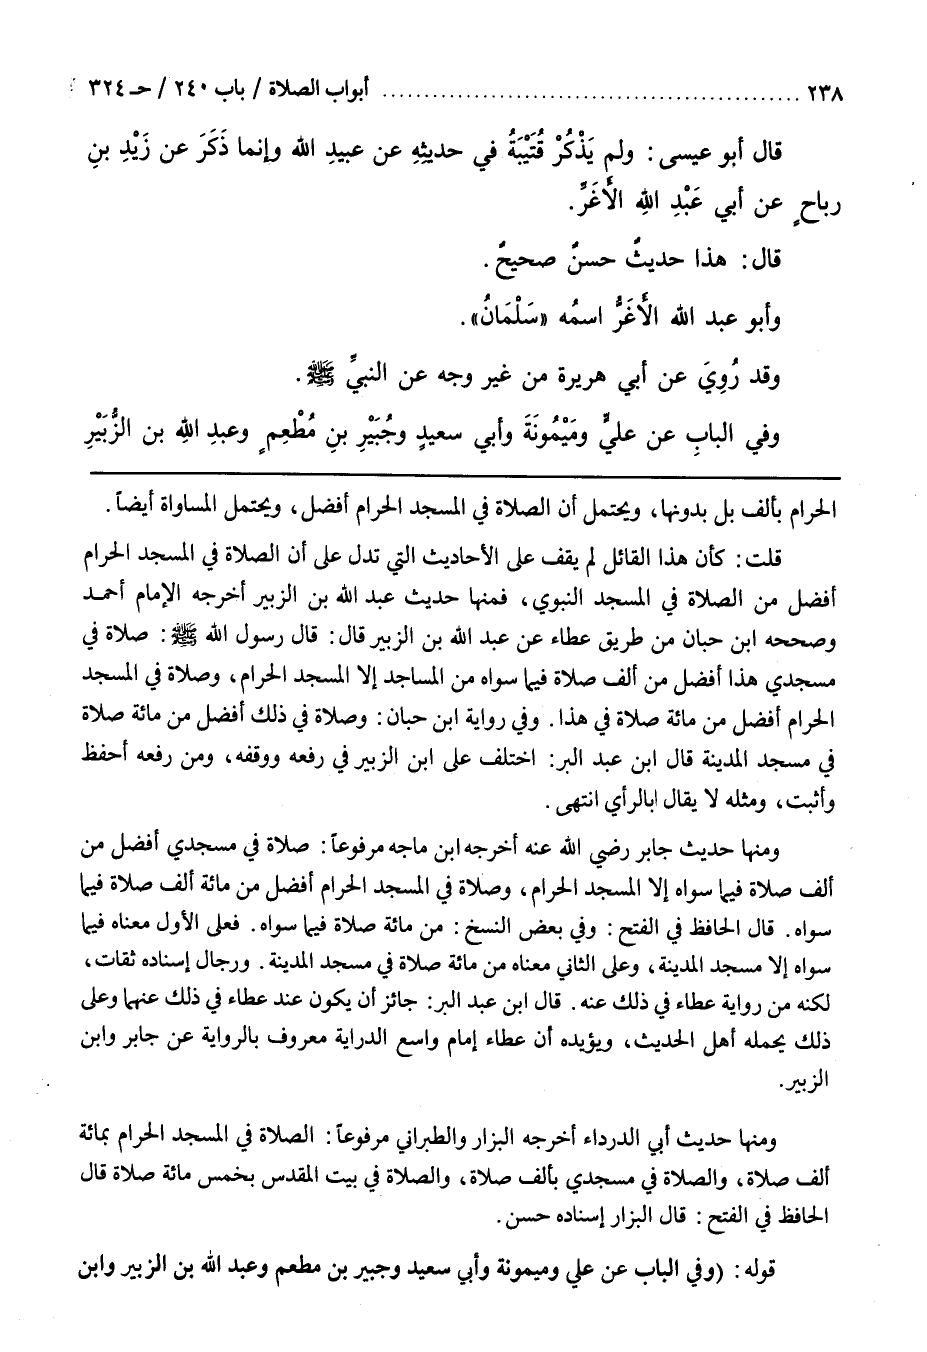 ٢٣٨ ................................................ أبواب الصلاة / باب ٢٤٠ / حـ ٣٢٤
قال أبو عيسى: ولم يَذْكُرْ قُتَيْبَةُ في حديثِهِ عن عبيدِ الله وإنما ذَكَرَ عن زَيْدِ بنِ
رباحٍ عن أبي عَبْدِ اللهِ الأَغَرِّ.
قال: هذا حديثٌ حسنٌ صحيحٌ.
وأبو عبد الله الأَغَرُّ اسمُه «سَلْمَانُ».
وقد رُوِيَ عن أبي هريرة من غير وجه عن النبيِّ ﷺ.
وفي البابِ عن عليٍّ ومَيْمُونَةَ وأبي سعيدٍ وجُبَيْرِ بنِ مُطْعِمٍ وعبدِ اللهِ بن الزُّبَيْرِ
الحرام بألف بل بدونها، ويحتمل أن الصلاة في المسجد الحرام أفضل، ويحتمل المساواة أيضاً.
قلت: كأن هذا القائل لم يقف على الأحاديث التي تدل على أن الصلاة في المسجد الحرام
أفضل من الصلاة في المسجد النبوي، فمنها حديث عبد الله بن الزبير أخرجه الإمام أحمد
وصححه ابن حبان من طريق عطاء عن عبد الله بن الزبير قال: قال رسول الله ﷺ: صلاة في
مسجدي هذا أفضل من ألف صلاة فيما سواه من المساجد إلا المسجد الحرام، وصلاة في المسجد
الحرام أفضل من مائة صلاة في هذا. وفي رواية ابن حبان: وصلاة في ذلك أفضل من مائة صلاة
في مسجد المدينة قال ابن عبد البر: اختلف على ابن الزبير في رفعه ووقفه، ومن رفعه أحفظ
وأثبت، ومثله لا يقال ابالرأي انتهى.
ومنها حديث جابر رضي الله عنه أخرجه ابن ماجه مرفوعاً: صلاة في مسجدي أفضل من
ألف صلاة فيما سواه إلا المسجد الحرام، وصلاة في المسجد الحرام أفضل من مائة ألف صلاة فيما
سواه. قال الحافظ في الفتح: وفي بعض النسخ: من مائة صلاة فيما سواه. فعلى الأول معناه فيما
سواه إلا مسجد المدينة، وعلى الثاني معناه من مائة صلاة في مسجد المدينة. ورجال إسناده ثقات،
لكنه من رواية عطاء في ذلك عنه. قال ابن عبد البر: جائز أن يكون عند عطاء في ذلك عنهما وعلى
ذلك يحمله أهل الحديث، ويؤيده أن عطاء إمام واسع الدراية معروف بالرواية عن جابر وابن
الزبير.
ومنها حديث أبي الدرداء أخرجه البزار والطبراني مرفوعاً: الصلاة في المسجد الحرام بمائة
ألف صلاة، والصلاة في مسجدي بألف صلاة، والصلاة في بيت المقدس بخمس مائة صلاة قال
الحافظ في الفتح: قال البزار إسناده حسن.
قوله: (وفي الباب عن علي وميمونة وأبي سعيد وجبير بن مطعم وعبد الله بن الزبير وابن